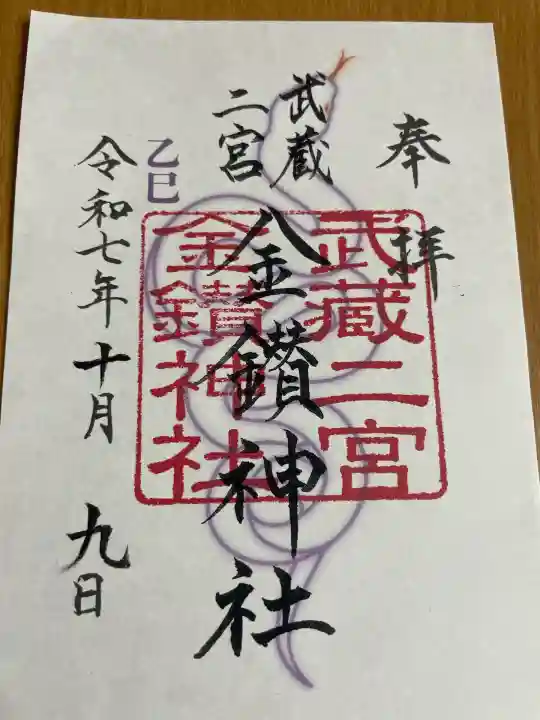 奉拝
武蔵
二宮
金鑚神社
武蔵二宮
金鑚神社
乙巳
令和七年十月九日